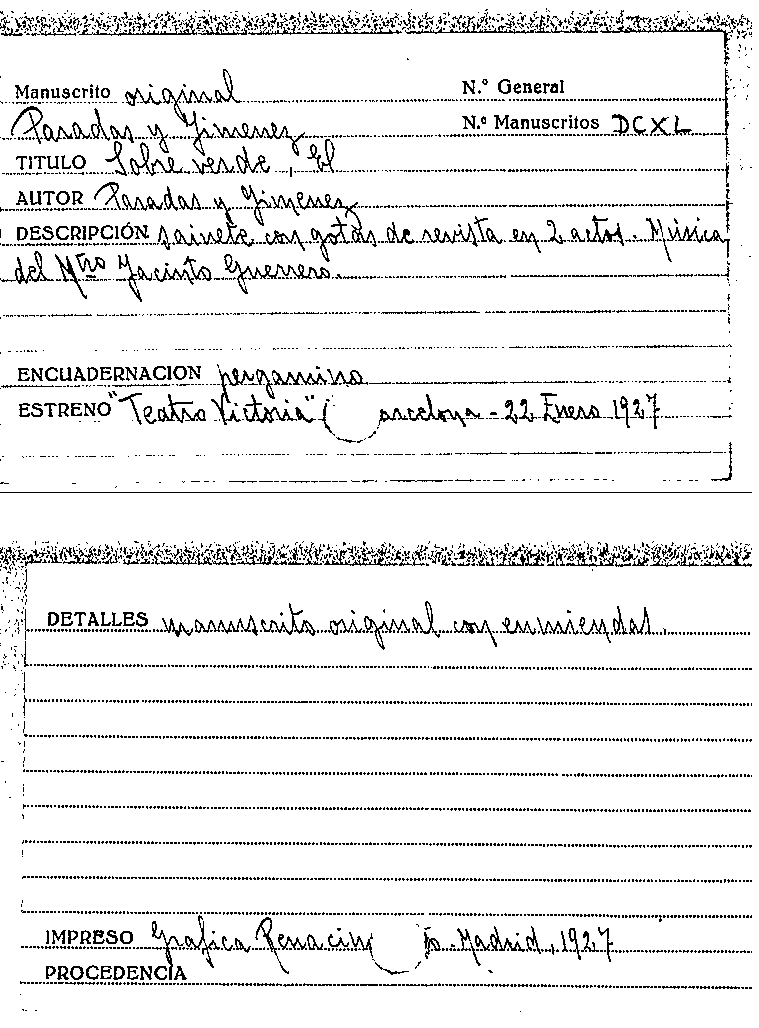 Manuscrito original N.º General
Paradas y Jimenez N.º Manuscritos DCXL
TITULO Sobre verde, El
AUTOR Paradas y Jimenez
DESCRIPCIÓN Sainete con gotas de revista en 2 actos. Música
del Mtro Jacinto Guerrero.
ENCUADERNACION pergamino
ESTRENO "Teatro Victoria" ( arcelona - 22 Enero 1927
DETALLES manuscrito original con enmiendas.
IMPRESO Grafica Renacim to. Madrid, 1927
PROCEDENCIA